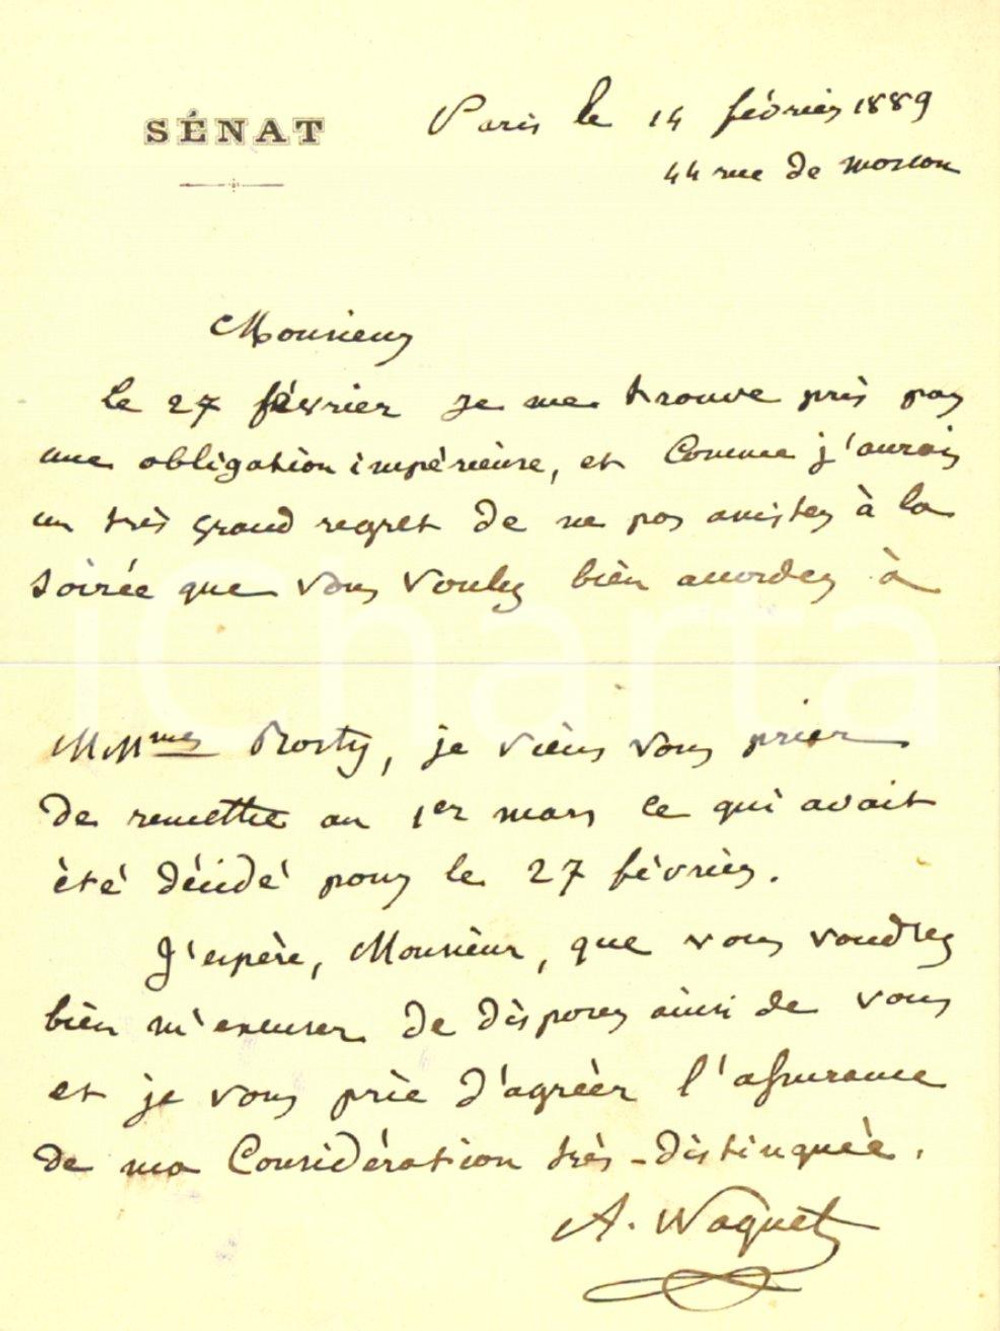 SÉNAT
Paris le 14 février 1889
44 rue de moscou
Monsieur
le 27 février je me trouve pris par
une obligation impérieure, et comme j'aurais
un très grand regret de ne pas assister à la
soirée que vous voulez bien accorder à
MMmes Rosty, je viens vous prier
de remettre au 1er mars ce qui avait
été décidé pour le 27 février.
J'espère, Monsieur, que vous voudrez
bien m'excuser de disposer ainsi de vous
et je vous prie d'agréer l'assurance
de ma Considération très-distinguée.
A. Waquet
iCharta